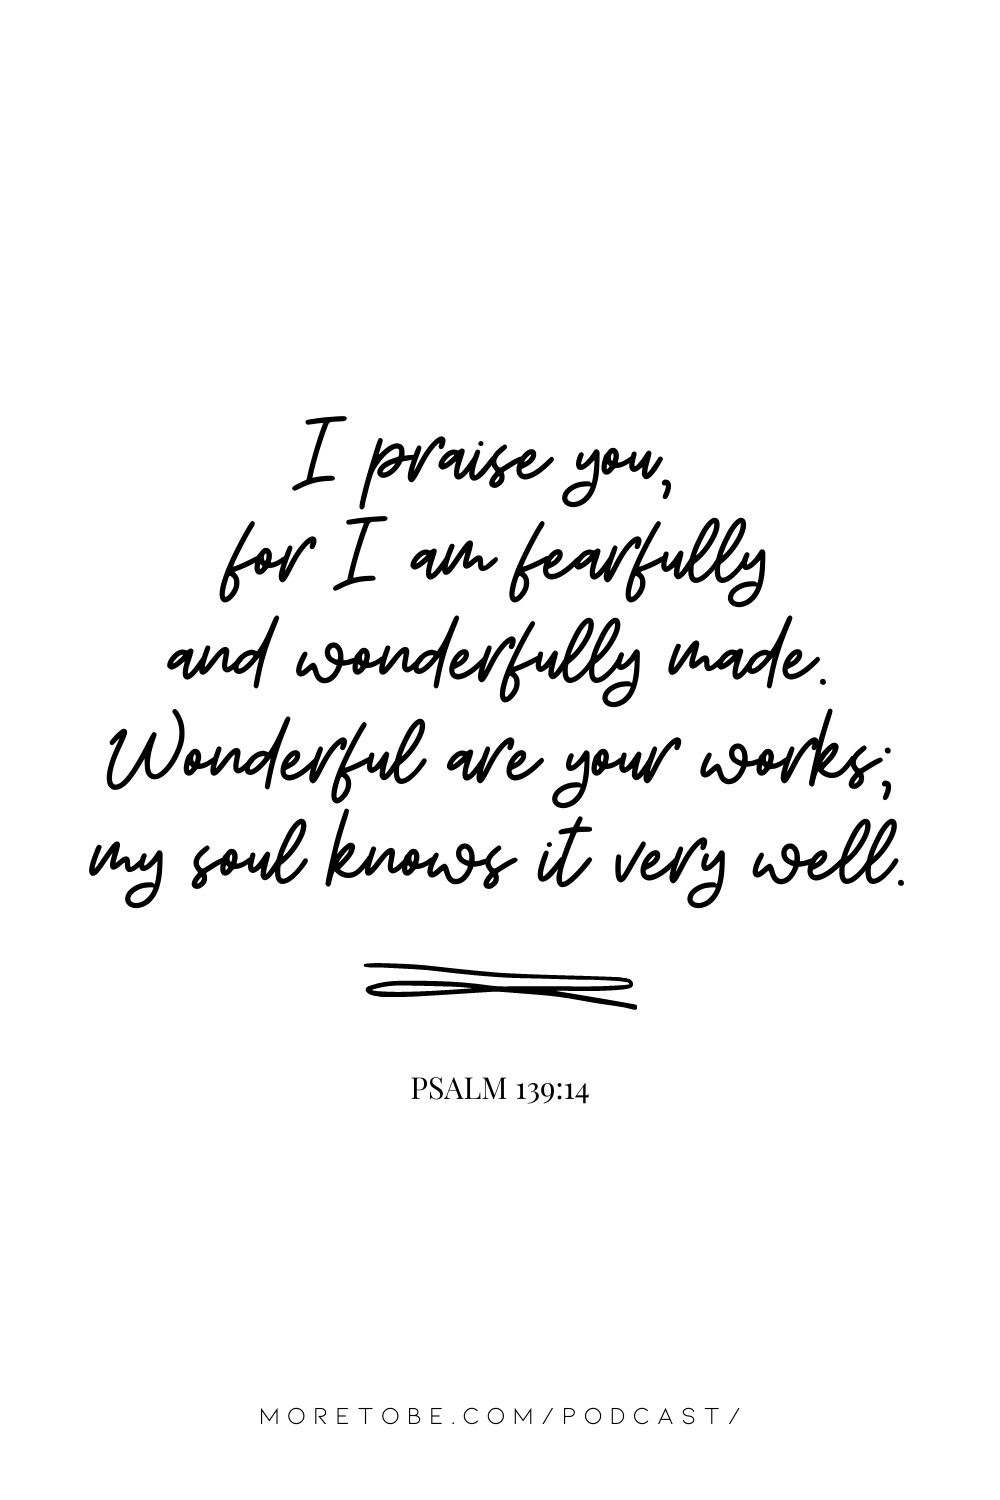 I praise you,
for I am fearfully
and wonderfully made.
Wonderful are your works;
my soul knows it very well.
PSALM 139:14
MORETOBE.COM/PODCAST/